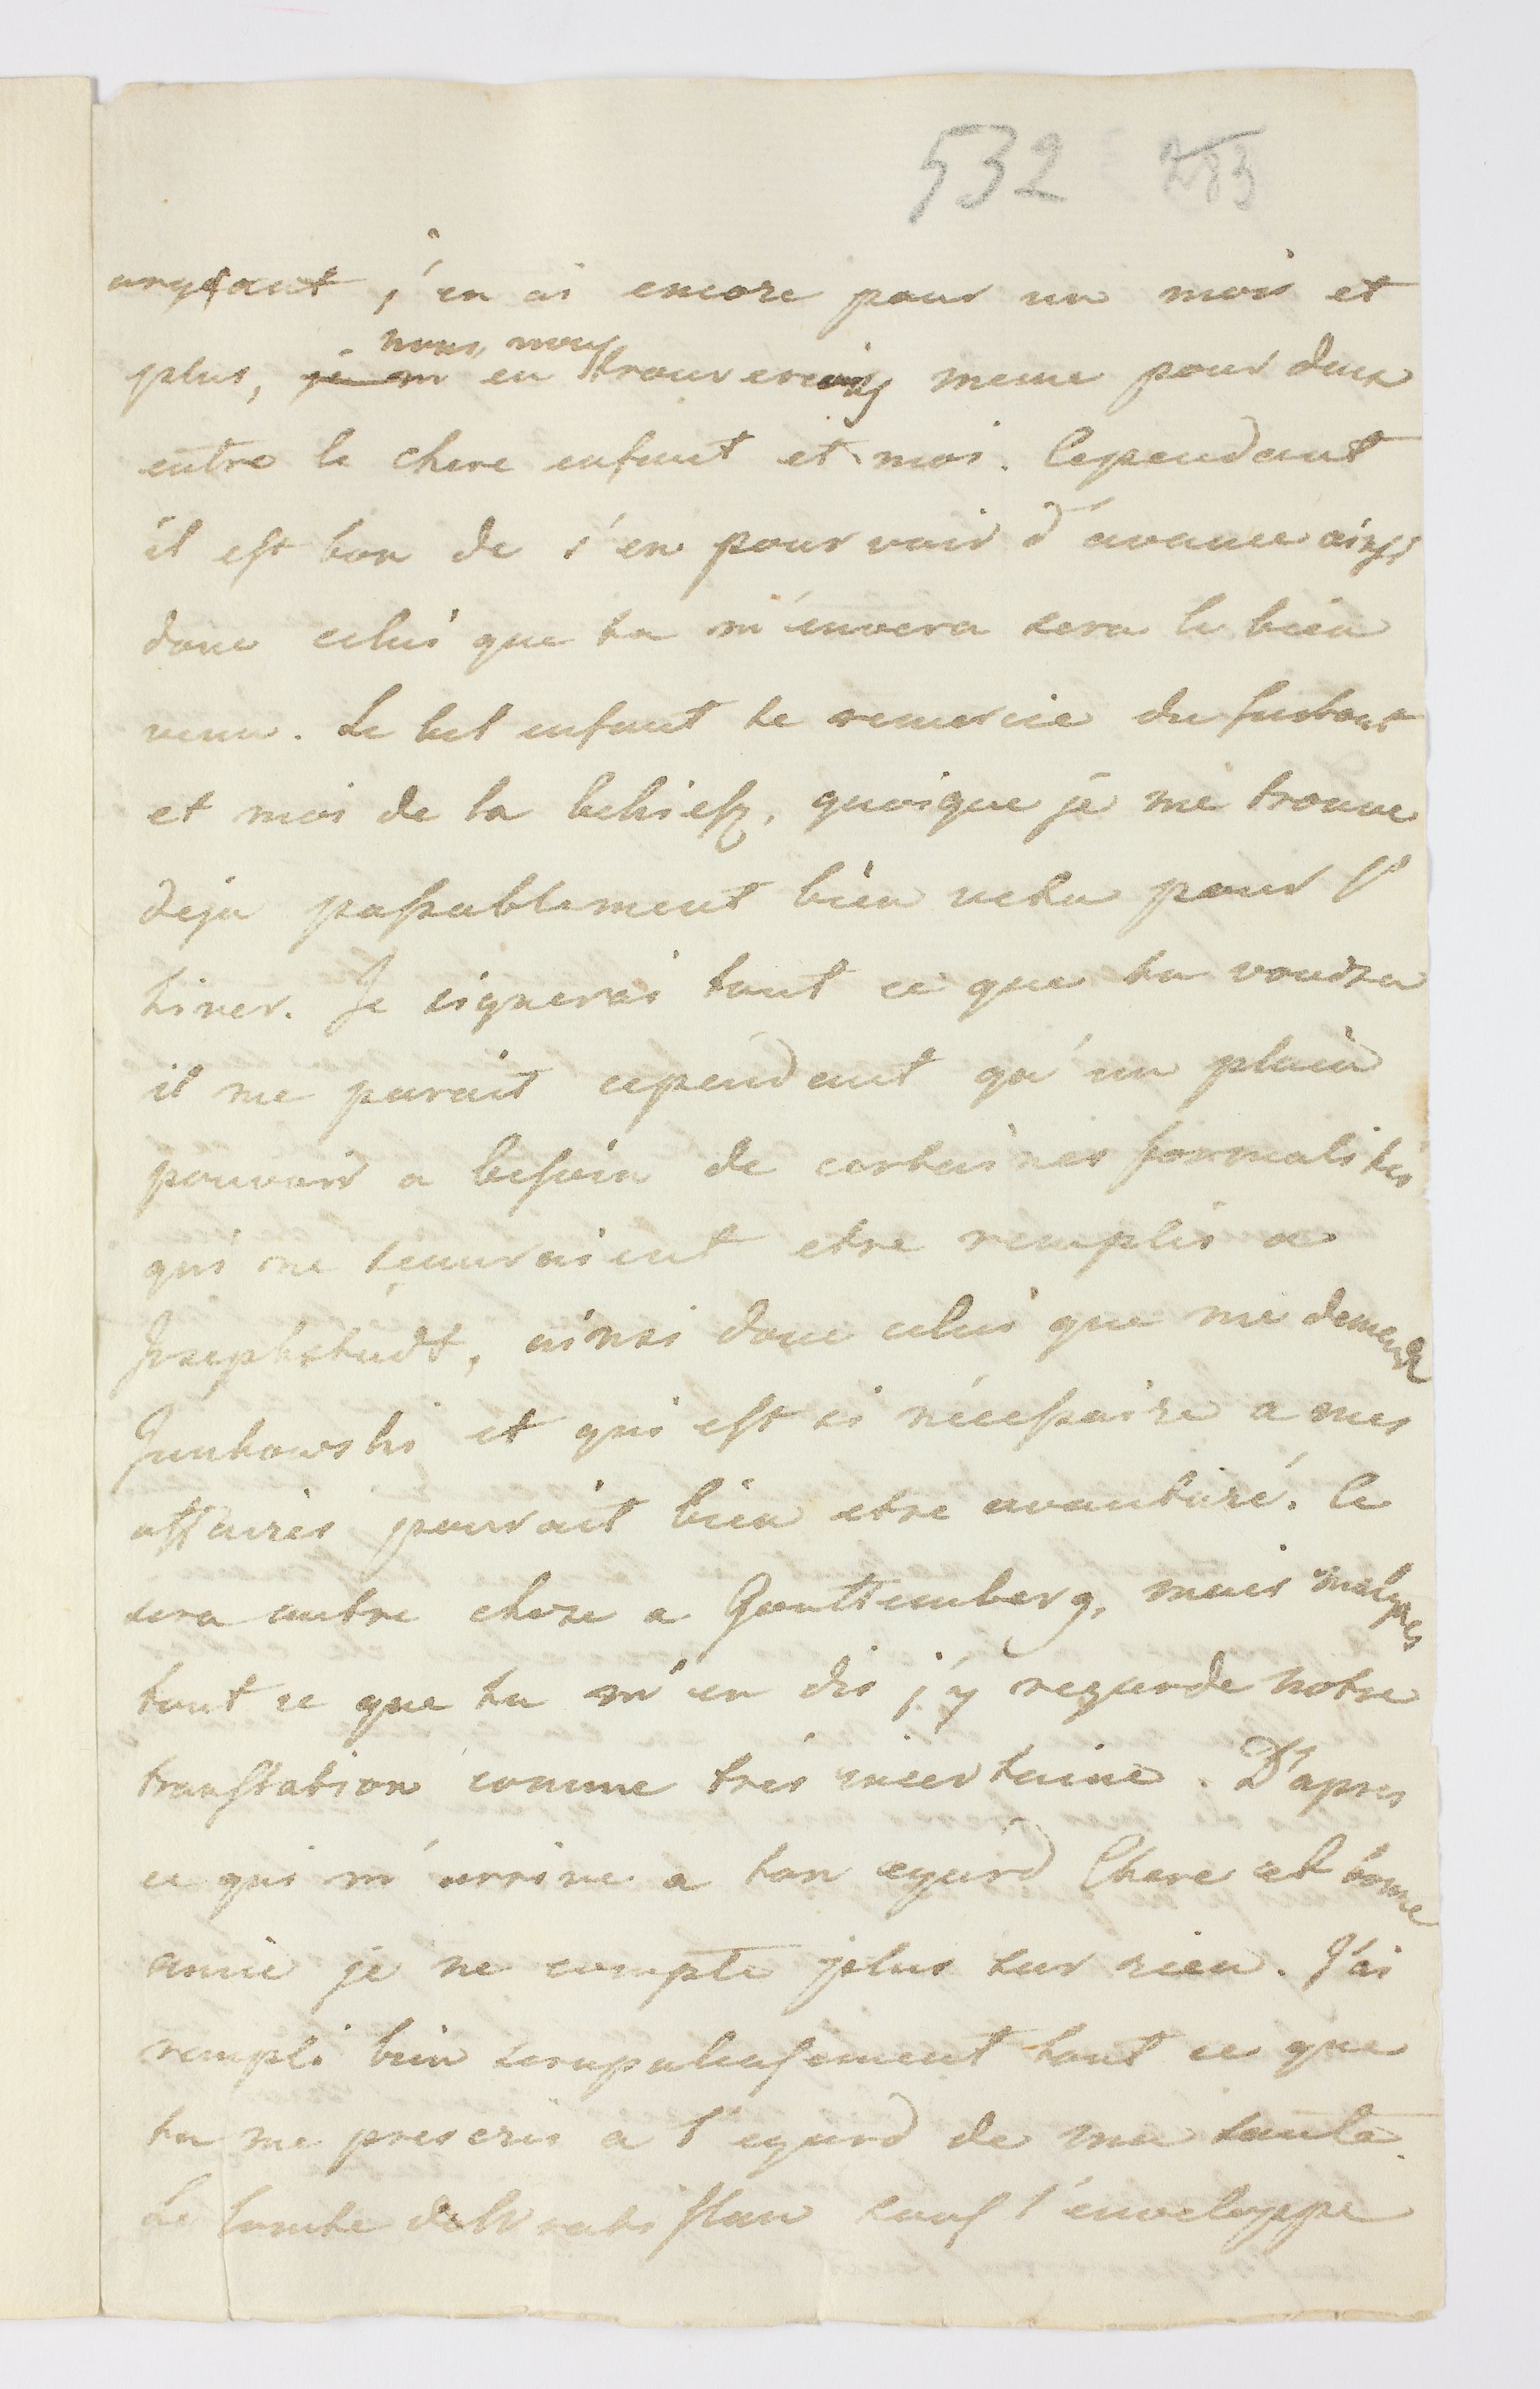 532 283
argeant j'en ai encore pour un mois et
nous nous
plus, je m en trouverions meme pour deux
entre le chere enfant et moi. Cependant
il est bon de s'en pourvoir d'avance ainsi
donc celui que tu m'envera sera le bien
venu. Le bel enfant te remercie du
et mois de la quoique je me trouve
deja passablement bien vetu pour l'
hiver. Je signerai tout ce que tu voudra
il me parait cependant qu'un plein
pouvoir a besoin de certaines formalités
qui ne sçauraient etre remplis a
Josephstadt, ainsi donc celui que me demende
Juntowski et qui est si nécessaire a mes
affaires pourait bien etre avanturé. Ce
sera autre chose a Gouttemberg, mais malgres
tout ce que tu m'en dis j'y regarde notre
translation comme très incertaine. D'apres
ce qui m'arrive a ton egard Chere et bonne
amie je ne compte plus sur rien. J'ai
rempli bien scrupuleusement tout ce que
tu me prescris a l'egard de ma tante.
Le Comte de Wratislau sous l'enveloppe